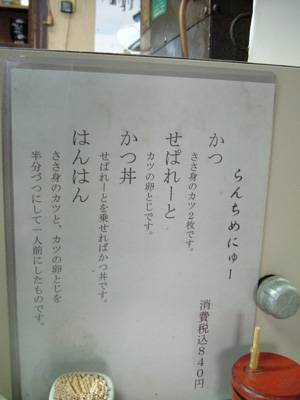 らんちめにゅー
消費税込840円
かつ
ささ身のカツ2枚です。
せぱれーと
カツの卵とじです。
かつ丼
せぱれーとを乗せればかつ丼です。
はんはん
ささ身のカツと、カツの卵とじを
半分づつにして一人前にしたものです。